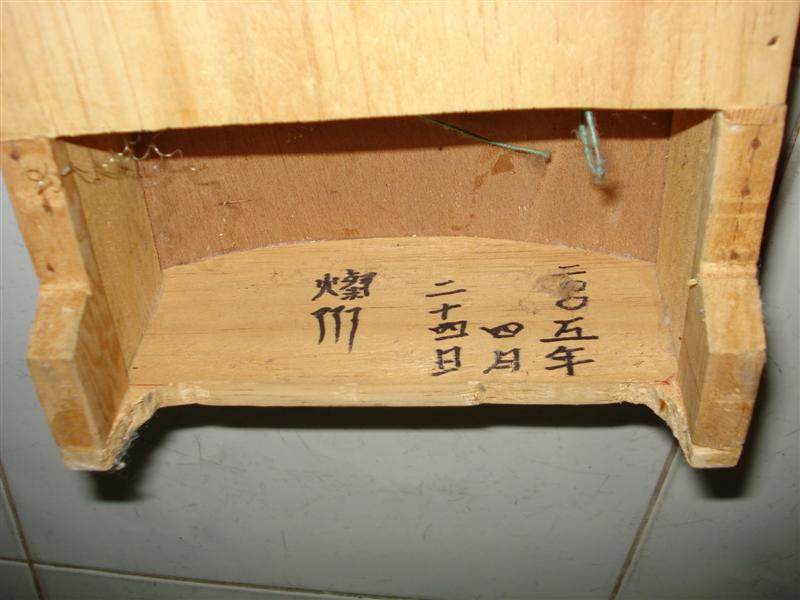 二〇〇五年
四月
二十四日
燦川